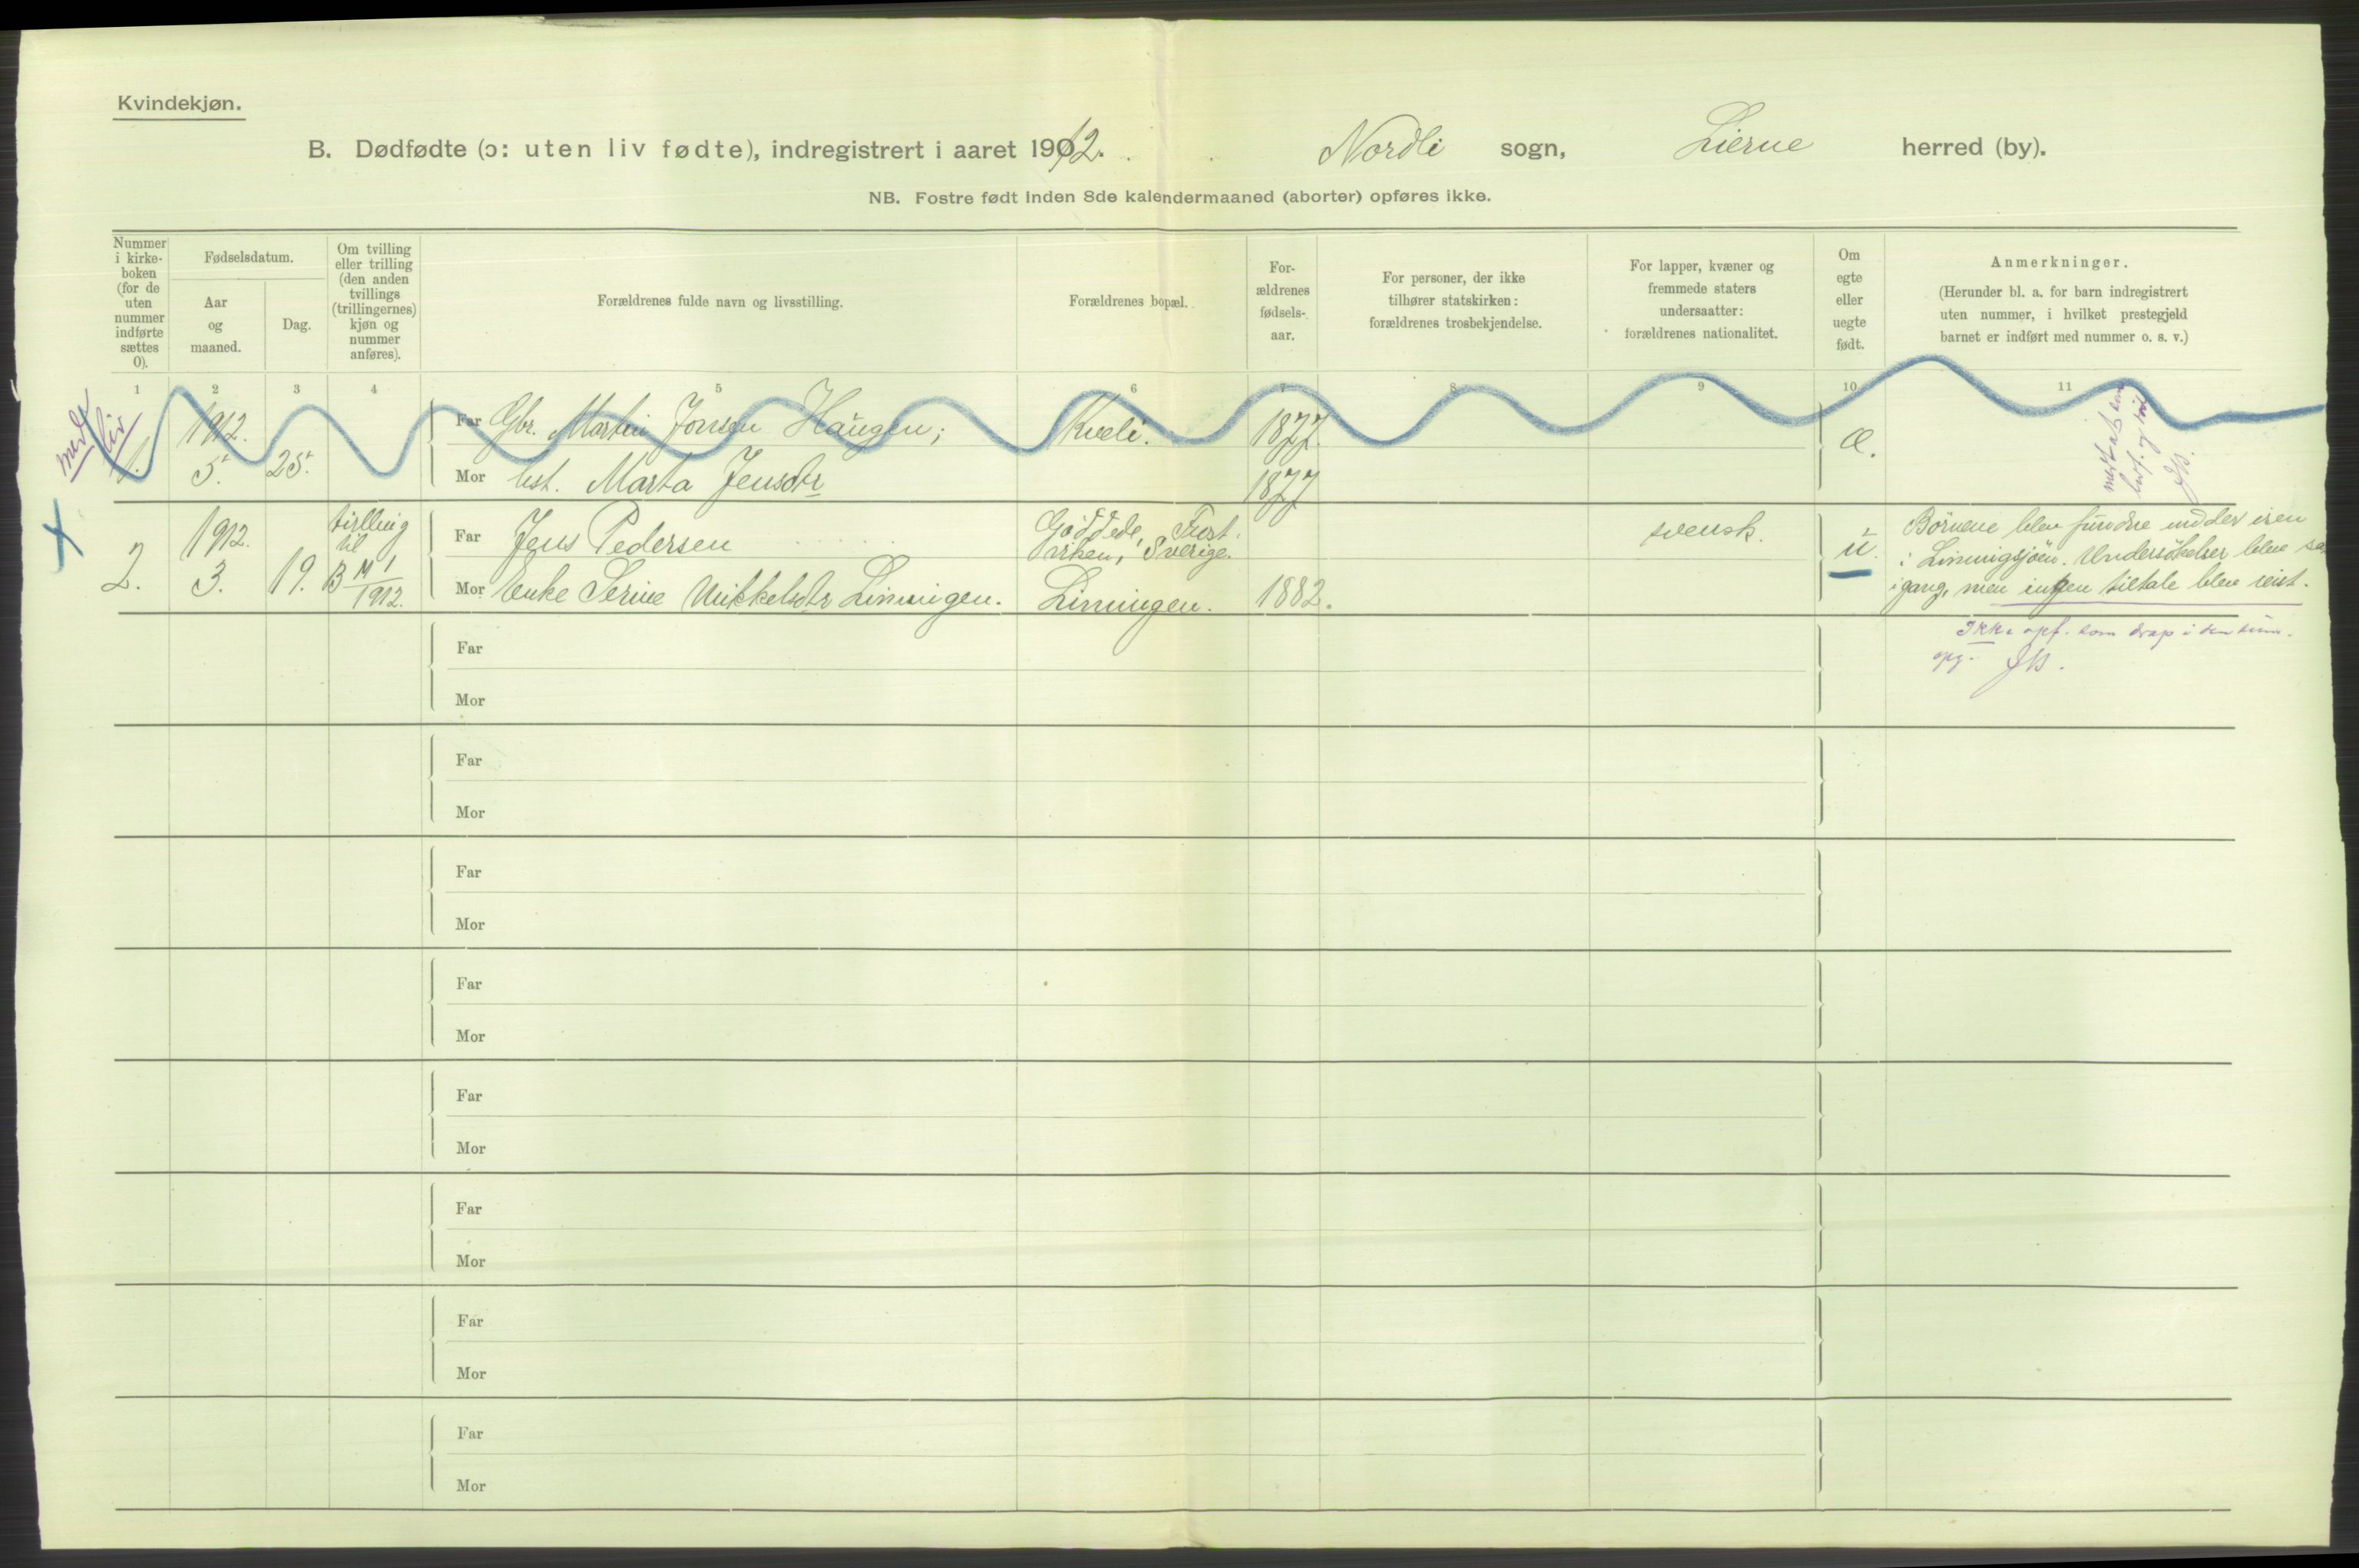 Kvindekjøn.
B. Dødfødte (ɔ: uten liv fødte), indregistrert i aaret 1912. Nordli sogn, Lierne herred (by).
NB. Fostre født inden 8de kalendermaaned (aborter) opføres ikke.
Nummer
i kirke-
boken
(for de
uten
nummer
indførte
sættes
0).
Fødselsdatum.
Aar
og
maaned.
Dag.
Om tvilling
eller trilling
(den anden
tvillings
(trillingernes)
kjøn og
nummer
anføres).
Forældrenes fulde navn og livsstilling.
Forældrenes bopæl.
For-
ældrenes
fødsels-
aar.
For personer, der ikke
tilhører statskirken:
forældrenes trosbekjendelse.
For lapper, kvæner og
fremmede staters
undersaatter:
forældrenes nationalitet.
Om
egte
eller
uegte
født.
Anmerkninger.
(Herunder bl. a. for barn indregistrert
uten nummer, i hvilket prestegjeld
barnet er indført med nummer o. s. v.)
1 2 3 4 5 6 7 8 9 10 11
med
liv
1.
1912.
5.
25.
Far Gbr. Martin Jonsen Haugen;
Mor hst. Marta Jensdtr
Kveli.
1877.
1877
æ.
2.
1912.
3.
19.
tvilling
til
B No 1
1912.
Far Jens Pedersen
Mor Enke Serine Mikkelsdtr Linningen.
Gäddede, Frost-
viken, Sverige.
Linningen.
1882.
svensk.
u.
Börnene blev fundne under isen
i Linningsjöen. Undersökelser blev sat
igang, men ingen tiltale blev reist.
Ikke opf. som drap i den krim.
opg.
Far
Mor
Far
Mor
Far
Mor
Far
Mor
Far
Mor
Far
Mor
Far
Mor
Far
Mor